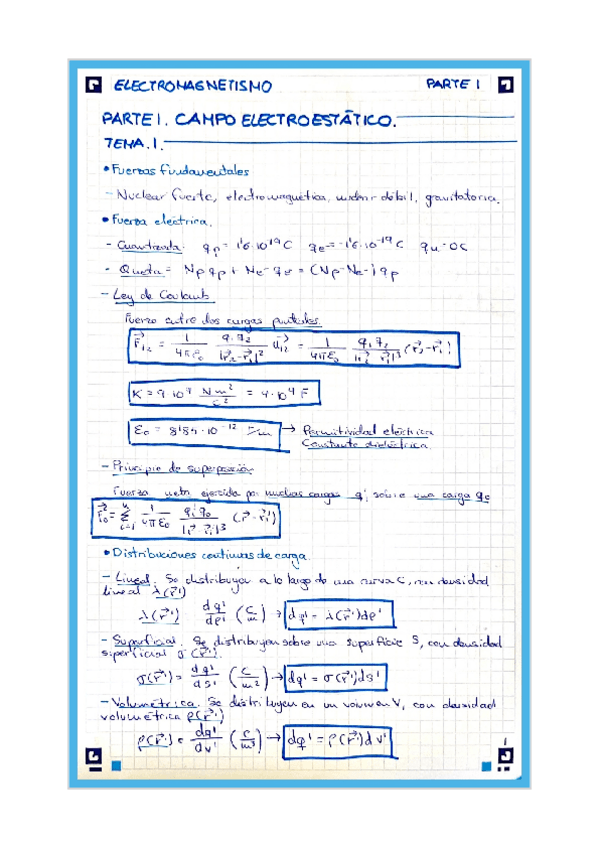 ELECTROMAGNETISMO
PARTE 1
PARTE 1. CAMPO ELECTROESTÁTICO.
TEMA.1.
• Fuerzas fundamentales
- Nuclear fuerte, electromagnética, nuclear débil, gravitatoria.
• Fuerza eléctrica.
- Cuantizada: qp = 1'6·10^19 C qe = -1'6·10^-19 C qn = 0C
- Qneta = Np qp + Ne· qe = (Np - Ne-) qp
- Ley de Coulomb
Fuerza entre dos cargas puntuales.
F⃗12 = 1/4πε0 q1 q2/|r⃗2-r⃗1|² u⃗12 = 1/4πε0 q1 q2/|r⃗2 r⃗1|³ (r⃗2-r⃗1)
K = 9·10^9 N m²/C²
ε0 = 8'85·10^-12 F/m → Permitividad eléctrica
Constante dieléctrica
- Principio de superposición
Fuerza neta ejercida por muchas cargas q'i sobre una carga q0
F⃗0 = Σ i=1 n 1/4πε0 qi q0/|r⃗ r⃗i|³ (r⃗-r⃗i')
• Distribuciones continuas de carga.
- Lineal. Se distribuyen a lo largo de una curva C, con densidad
lineal λ(r⃗')
λ(r⃗') dq'/dl' (C/m) → dq' = λ(r⃗')dl'
- Superficial. Se distribuyen sobre una superficie S, con densidad
superficial σ(r⃗').
σ(r⃗') = dq'/ds' (C/m²) → dq' = σ(r⃗')ds'
- Volumétrica. Se distribuyen en un volumen V, con densidad
volumétrica ρ(r⃗')
ρ(r⃗') = dq'/dv' (C/m³) → dq' = ρ(r⃗')dv'
1